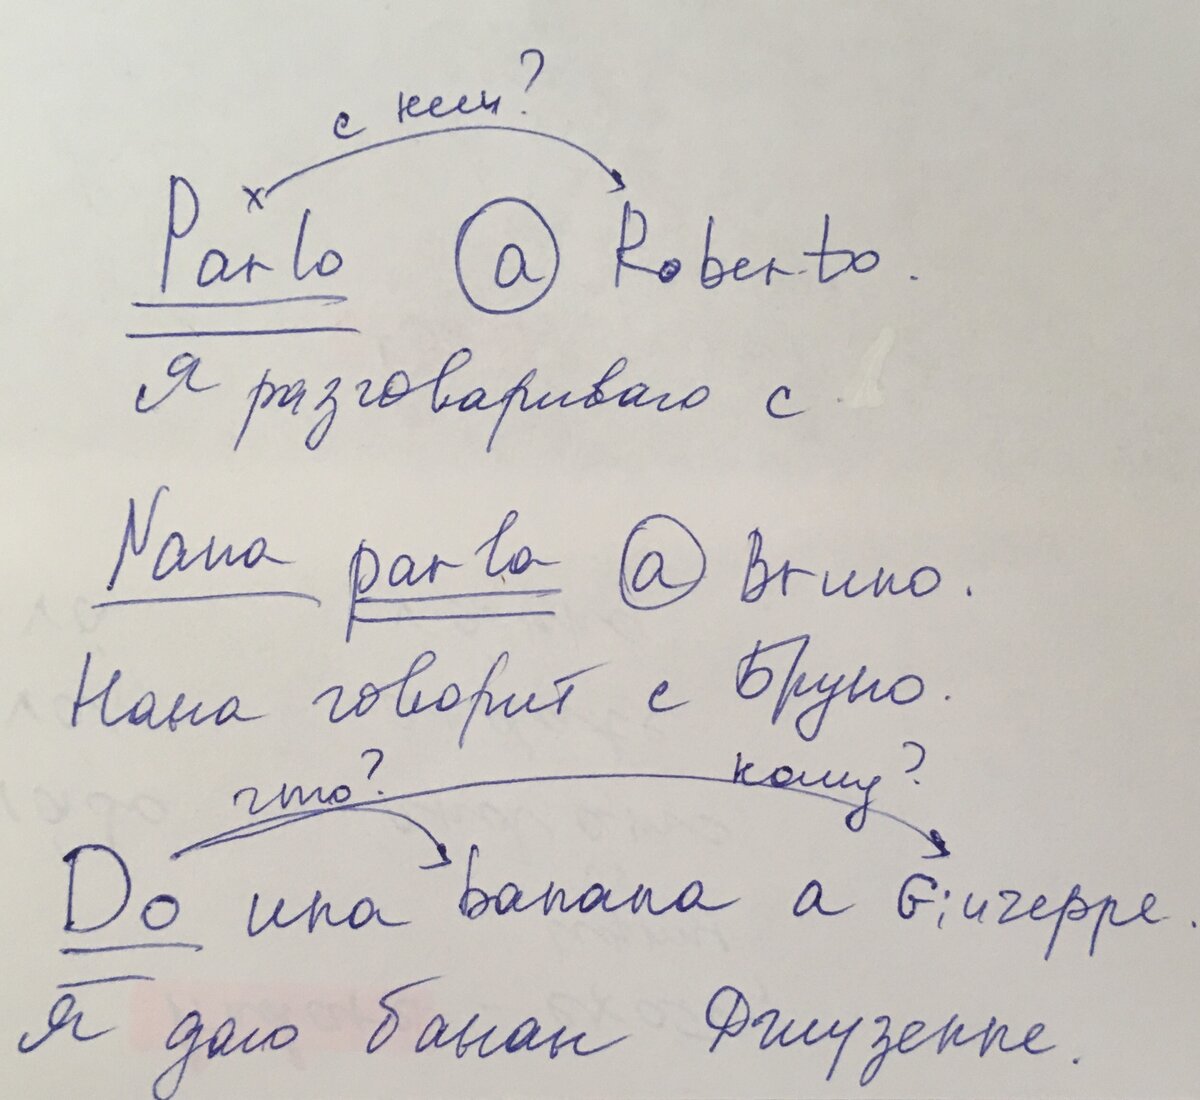 с кем?
x
Parlo a Roberto.
Я разговариваю с
Nana parla a Bruno.
Нана говорит с Бруно.
что? кому?
Do una banana a Giuzeppe.
Я даю банан Джузеппе.